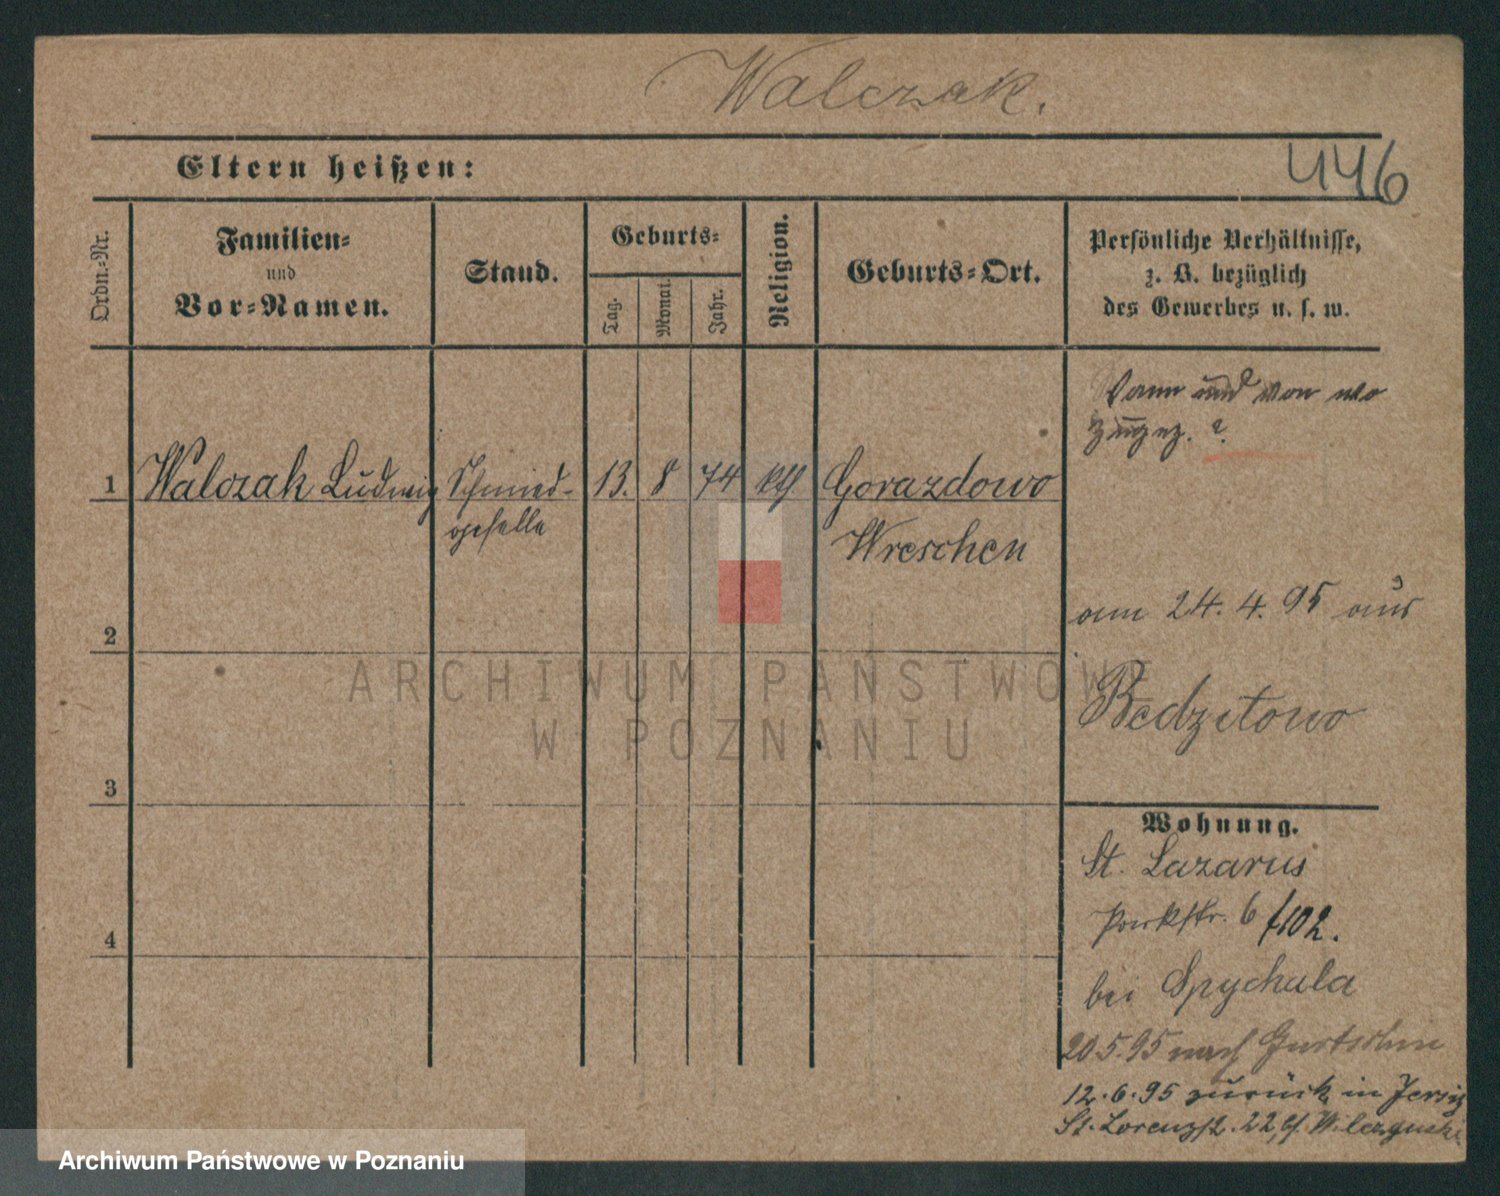 Walczak.
Eltern heißen:
446
Ordn.-Nr.
Familien-
und
Vor-Namen.
Stand.
Geburts-
Tag.
Monat.
Jahr.
Religion.
Geburts-Ort.
Persönliche Verhältnisse,
z. B. bezüglich
des Gewerbes u. s. w.
Wann und von wo
zugez. ?
1 Walczak Ludwig Schmied- 13. 8 74 kth Gorazdowo
geselle Wreschen
am 24. 4. 95 aus
2
Bedzitowo
3
Wohnung.
St. Lazarus
Parkstr. 6 f102.
4
bei Spychala
20.5.95 nach Gurtschin
12.6.95 zurück in Jersitz
St. Lorenzstr. 22,
ARCHIWUM PAŃSTWOWE
W POZNANIU
Archiwum Państwowe w Poznaniu